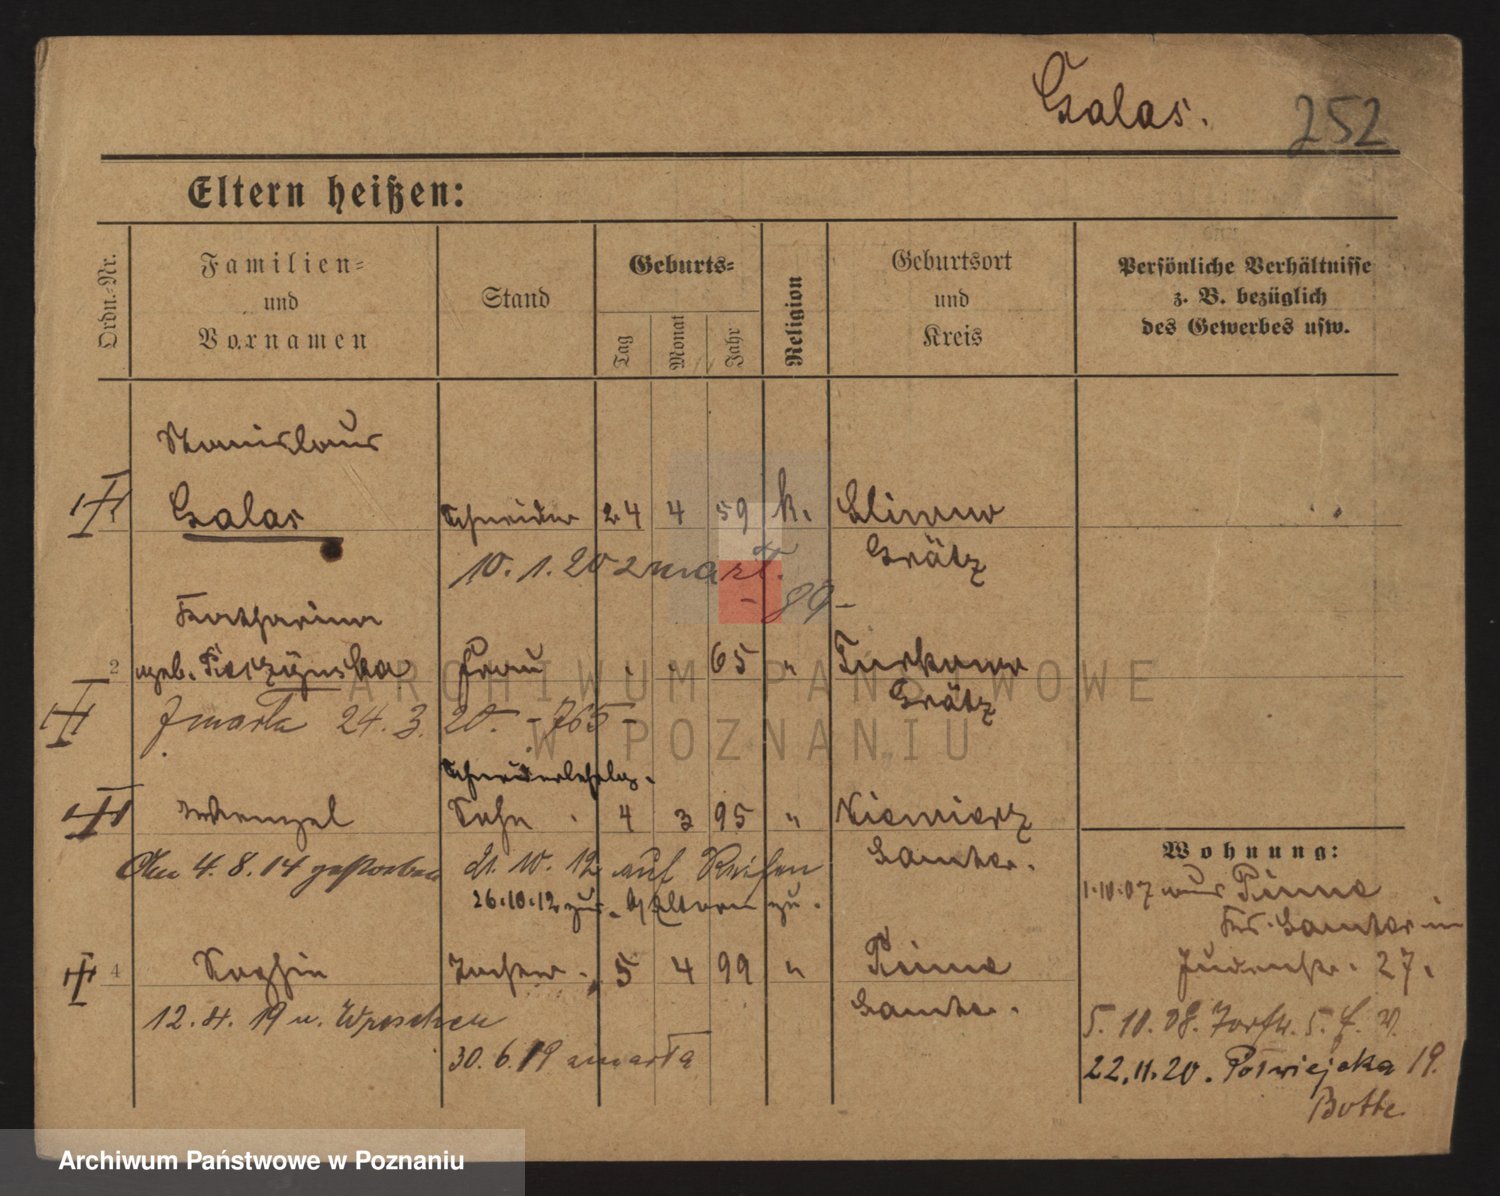 Galas.
252
Eltern heißen:
Ordn.-Nr.
Familien-
und
Vornamen
Stand
Geburts-
Tag
Monat
Jahr
Religion
Geburtsort
und
Kreis
Persönliche Verhältnisse
z. B. bezüglich
des Gewerbes usw.
Stanislaus
1 Galas Schneider 24 4 59 k.
Grätz
10. 1. 20 zmarł.
- 89 -
Katharina
2 geb. Frau " " 65 " Turkowo
Grätz
zmarła 24. 3. 20. - 765 -
Schneiderlehrlg.
Wenzel Sohn " 4 3 95 " Niemierz
Samter.
4. 8. 14 gestorben 21. 10. 12 auf Reisen
26.10.12 zur. Eltern zu.
4 Sophie Tochter. 5 4 99 " Pinne
Samter.
12. 4. 19 n. Wreschen
30. 6. 19 zmarła
Wohnung:
1.10.07 aus Pinne
Kr. Samter in
Judenstr. 27.
5. 10. 08. Torfstr. 5.
22.11.20. Półwiejska 19.
Botte
ARCHIWUM PAŃSTWOWE
W POZNANIU
Archiwum Państwowe w Poznaniu